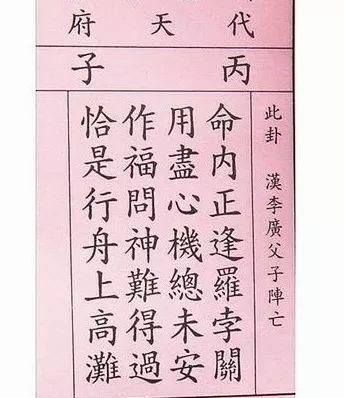 代天府
丙子
此卦 漢李廣父子陣亡
命內正逢羅孛關
用盡心機總未安
作福問神難得過
恰是行舟上高灘